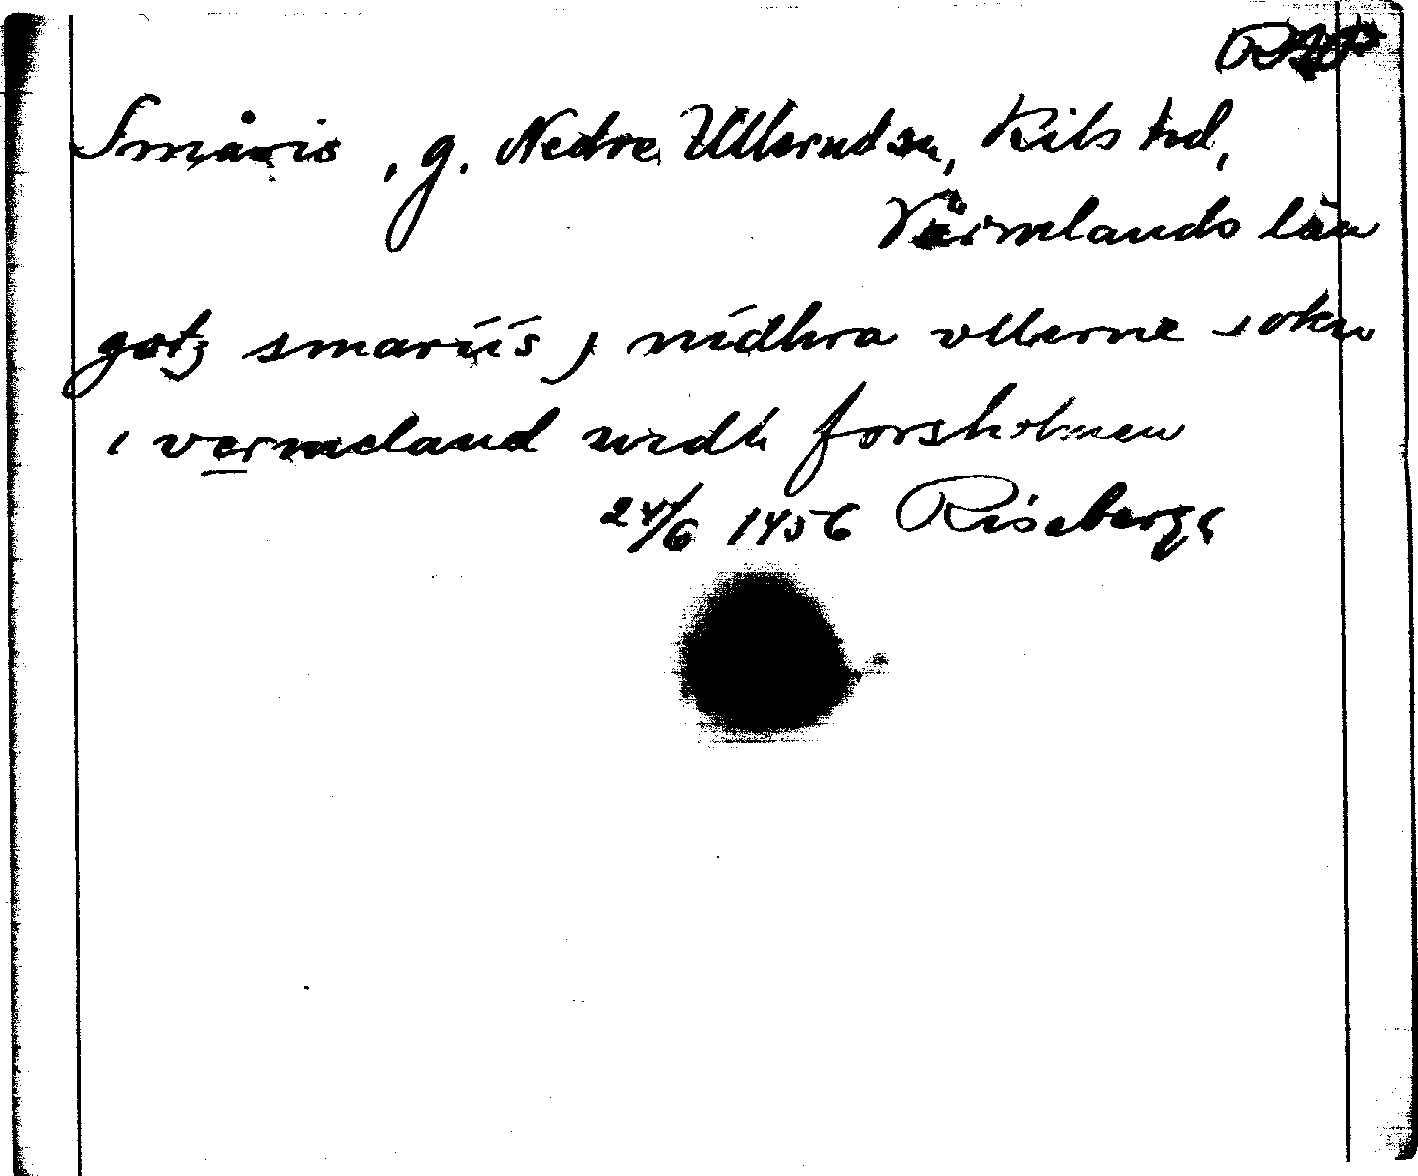 Småris, g. Nedre Ullerud sn, Kils hd,
Värmlands län
gotz smariis j nidhra vllerne sokn
i vermeland widh forsholmen
24/6 1456 Riseberga